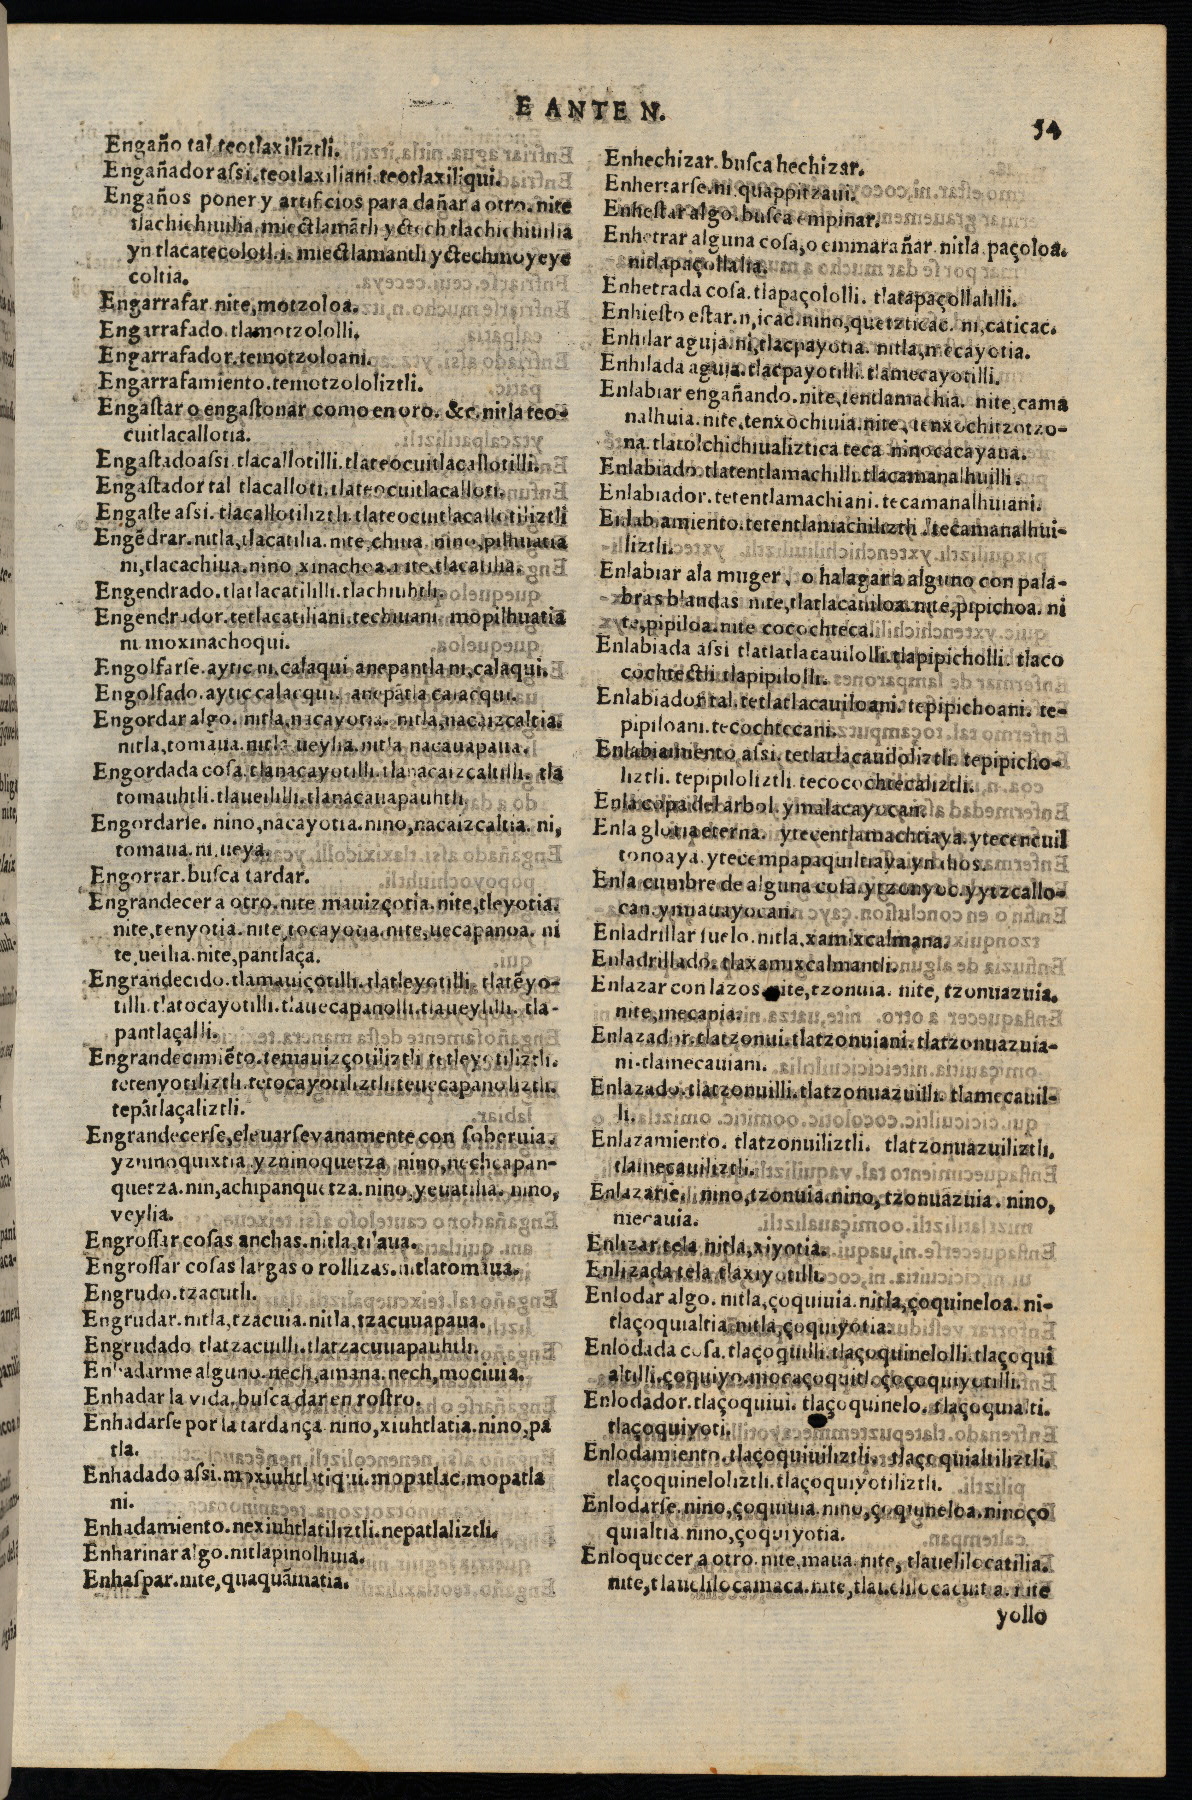 E ANTE N.
54
Engaño tal. teotlaxiliztli.
Engañador assi. teotlaxiliani. teotlaxiliqui.
Engaños poner y artificios para dañar a otro. nite
tlachichiuilia. miectlamãtli yctech tlachichiuilia
yn tlacatecolotl. i. miectlamantli yctechmoyeye
coltia.
Engarrafar. nite, motzoloa.
Engarrafado. tlamotzololli.
Engarrafador. temotzoloani.
Engarrafamiento. temotzololiztli.
Engastar o engastonar como en oro. &c. nitla teo-
cuitlacallotia.
Engastado assi. tlacallotilli. tlateocuitlacallotilli.
Engastador tal tlacalloti. tlateocuitlacalloti.
Engaste assi. tlacallotiliztli. tlateocuitlacallotiliztli
Engẽdrar. nitla, tlacatilia. nite, chiua nino, pilhuatia
ni, tlacachiua. nino xinachoa. nite. tlacatilia.
Engendrado. tlatlacatililli. tlachiuhtli.
Engendrador. tetlacatiliani. techiuani mopilhuatia
ni moxinachoqui.
Engolfarse. aytic ni, calaqui anepantla ni, calaqui.
Engolfado. aytic calacqui. anepãtla calacqui.
Engordar algo. nitla, nacayotia. nitla, nacaizcaltia.
nitla, tomaua. nitla ueylia. nitla nacauapaua.
Engordada cosa. tlanacayotilli. tlanacaizcaltilli. tla
tomauhtli. tlaueililli. tlanacauapauhtli
Engordarse. nino, nacayotia. nino, nacaizcaltia. ni,
tomaua. ni, ueya.
Engorrar. busca tardar.
Engrandecer a otro. nite mauizçotia. nite, tleyotia.
nite, tenyotia. nite, tocayotia. nite, uecapanoa. ni
te, ueilia. nite, pantlaça.
Engrandecido. tlamauiçotilli. tlatleyotilli. tlatẽyo-
tilli. tlatocayotilli. tlauecapanolli. tlaueylilli. tla-
pantlaçalli.
Engrandecimiẽto. temauizçotiliztli tetleyotiliztli.
tetenyotiliztli. tetocayotiliztli. teuecapanoliztli.
tepãtlaçaliztli.
Engrandecerse, eleuarse vanamente con soberuia.
yzninoquixtia. yzninoquetza nino, nechcapan-
quetza. nin, achipanquetza. nino, yeuatilia. nino,
veylia.
Engrossar cosas anchas. nitla, tilaua.
Engrossar cosas largas o rollizas. nitlatomaua.
Engrudo. tzacutli.
Engrudar. nitla, tzacuia. nitla, tzacuuapaua.
Engrudado tlatzacuilli. tlatzacuuapauhtli.
Enhadarme alguno. nech, amana. nech, mociuia.
Enhadar la vida. busca dar en rostro.
Enhadarse por la tardança. nino, xiuhtlatia. nino, pa
tla.
Enhadado assi. moxiuhtlatiqui. mopatlac. mopatla
ni.
Enhadamiento. nexiuhtlatiliztli. nepatlaliztli.
Enharinar algo. nitlapinolhuia.
Enhaspar. nite, quaquãmatia.
Enhechizar. busca hechizar.
Enhertarse. ni, quappitzaui.
Enhestar algo. busca empinar.
Enhetrar alguna cosa, o enmarañar. nitla. paçoloa.
nitlapaçollalia.
Enhetrada cosa. tlapaçololli. tlatapaçollalilli.
Enhiesto estar. n, icac. nino, quetzticac. ni, caticac.
Enhilar aguja. ni, tlacpayotia. nitla, mecayotia.
Enhilada aguja. tlacpayotilli. tlamecayotilli.
Enlabiar engañando. nite, tentlamachia. nite, cama
nalhuia. nite, tenxochiuia. nite, tenxochitzotzo-
na. tlatolchichiualiztica teca ninocacayaua.
Enlabiado. tlatentlamachilli. tlacamanalhuilli.
Enlabiador. tetentlamachiani. tecamanalhuiani.
Enlabiamiento. tetentlamachiliztli. tecamanalhui-
liztli.
Enlabiar ala muger, o halagar a alguno con pala-
bras blandas nite, tlatlacauiloa. nite, pipichoa. ni
te, pipiloa. nite cocochteca.
Enlabiada assi tlatlatlacauilolli. tlapipicholli. tlaco
cochtectli. tlapipilolli.
Enlabiador tal. tetlatlacauiloani. tepipichoani. te-
pipiloani. tecochtecani.
Enlabiamiento assi. tetlatlacauiloliztli. tepipicho-
liztli. tepipiloliztli tecocochtecaliztli.
Enla copa del arbol. ymalacayocan.
Enla gloria eterna. yteventlamachtiaya. ytecencuil
tonoaya. ytecempapaquiltiaya yn dios.
Enla cumbre de alguna cosa. ytzonyoc. yytzcallo-
can. ymiauayocan.
Enladrillar suelo. nitla, xamixcalmana.
Enladrillado. tlaxamixcalmantli.
Enlazar con lazos. nite, tzonuia. nite, tzonuazuia.
nite, mecania.
Enlazador. tlatzonui. tlatzonuiani. tlatzonuazuia-
ni. tlamecauiani.
Enlazado. tlatzonuilli. tlatzonuazuilli. tlamecauil-
li.
Enlazamiento. tlatzonuiliztli. tlatzonuazuiliztli.
tlamecauiliztli.
Enlazarse. nino, tzonuia. nino, tzonuazuia. nino,
mecauia.
Enlizar tela nitla, xiyotia.
Enlizada tela tlaxiyotilli.
Enlodar algo. nitla, çoquiuia. nitla, çoquineloa. ni-
tlaçoquialtia. nitla, çoquiyotia.
Enlodada cosa. tlaçoquilli. tlaçoquinelolli. tlaçoqui
altilli. çoquiyo. mocaçoquitl. çoçoquiyotilli.
Enlodador. tlaçoquiui. tlaçoquinelo. tlaçoquialti.
tlaçoquiyoti.
Enlodamiento. tlaçoquiuiliztli. tlaçoquialtiliztli.
tlaçoquineloliztli. tlaçoquiyotiliztli.
Enlodarse. nino, çoquiuia. nino, çoquineloa. ninoço
quialtia. nino, çoquiyotia.
Enloquecer a otro. nite, maua. nite, tlauelilocatilia.
nite, tlauelilocamaca. nite, tlauelilocacuitia. nite
yollo